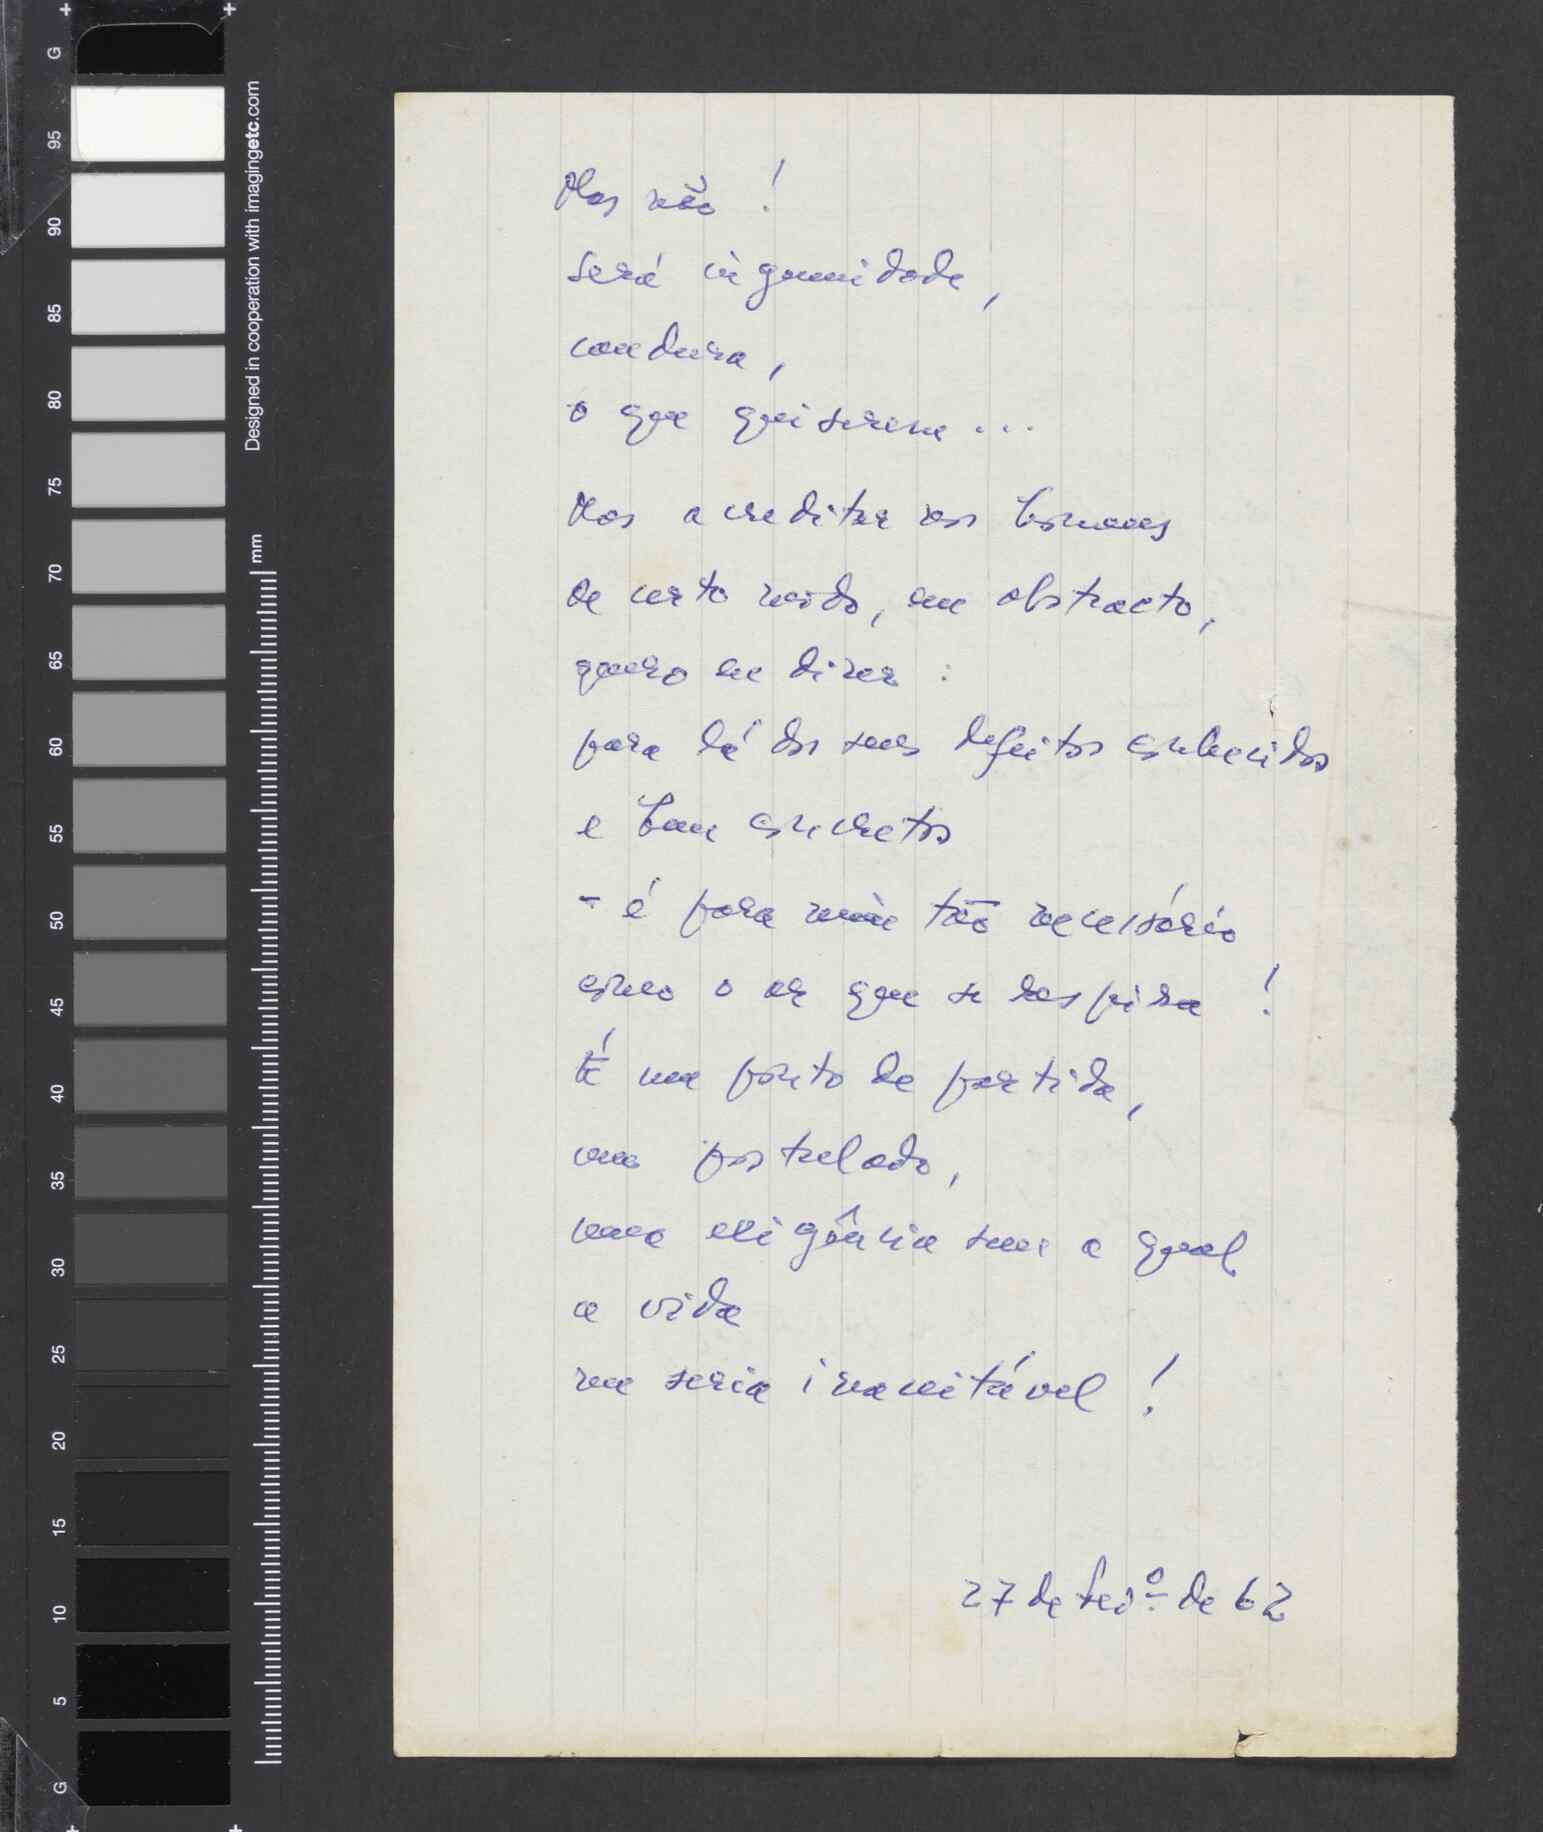 G
95
90
85
80
75
70
65
60
55
50
45
40
35
30
25
20
15
10
5
G
Designed in cooperation with imagingetc.com
mm
Mas não !
será ingenuidade,
candura,
o que quiserem ...
Mas acreditar nos homens
de certo modo, em abstracto,
quero eu dizer :
para lá dos seus defeitos conhecidos
e bem concretos
- é para mim tão necessário
como o ar que se respira !
É um ponto de partida,
um postulado,
uma exigência sem a qual
a vida
me seria inaceitável !
27 de Fevº de 62